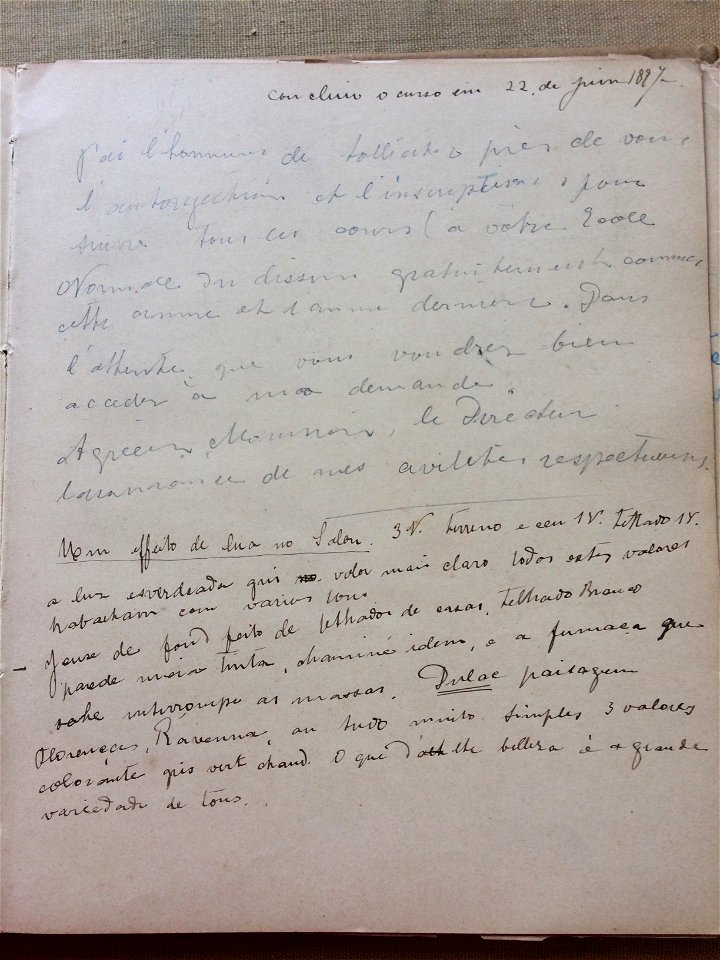 concluio o curso em 22 de juin 1897
J'ai l'honneur de solliciter près de vous
l'autorisation et l'inscription pour
suivre tous les cours à votre École
Normale du dessin gratuitement comme
cette année et l'année dernière. Dans
l'attente que vous voudrez bien
acceder à ma demande.
Agréez, Monsieur, le Directeur
l'assurance de mes civilités respectueuses.
Um effeito de lua no Salon. 3 V. terreno e ceu 1V. telhado 1V.
a luz esverdeada gris valor mais claro todos estes valores
trabalham com varios tons
de fond feito de telhados de casas, telhado Branco
parede meia tinta, chaminé idem, e a fumaça que
sahe interrompe as massas. Dulac paisagem
Florença, Ravenna, tudo muito simples 3 valores
colorante gris vert chaud. O que dá lhe belleza é a grande
variedade de tons.